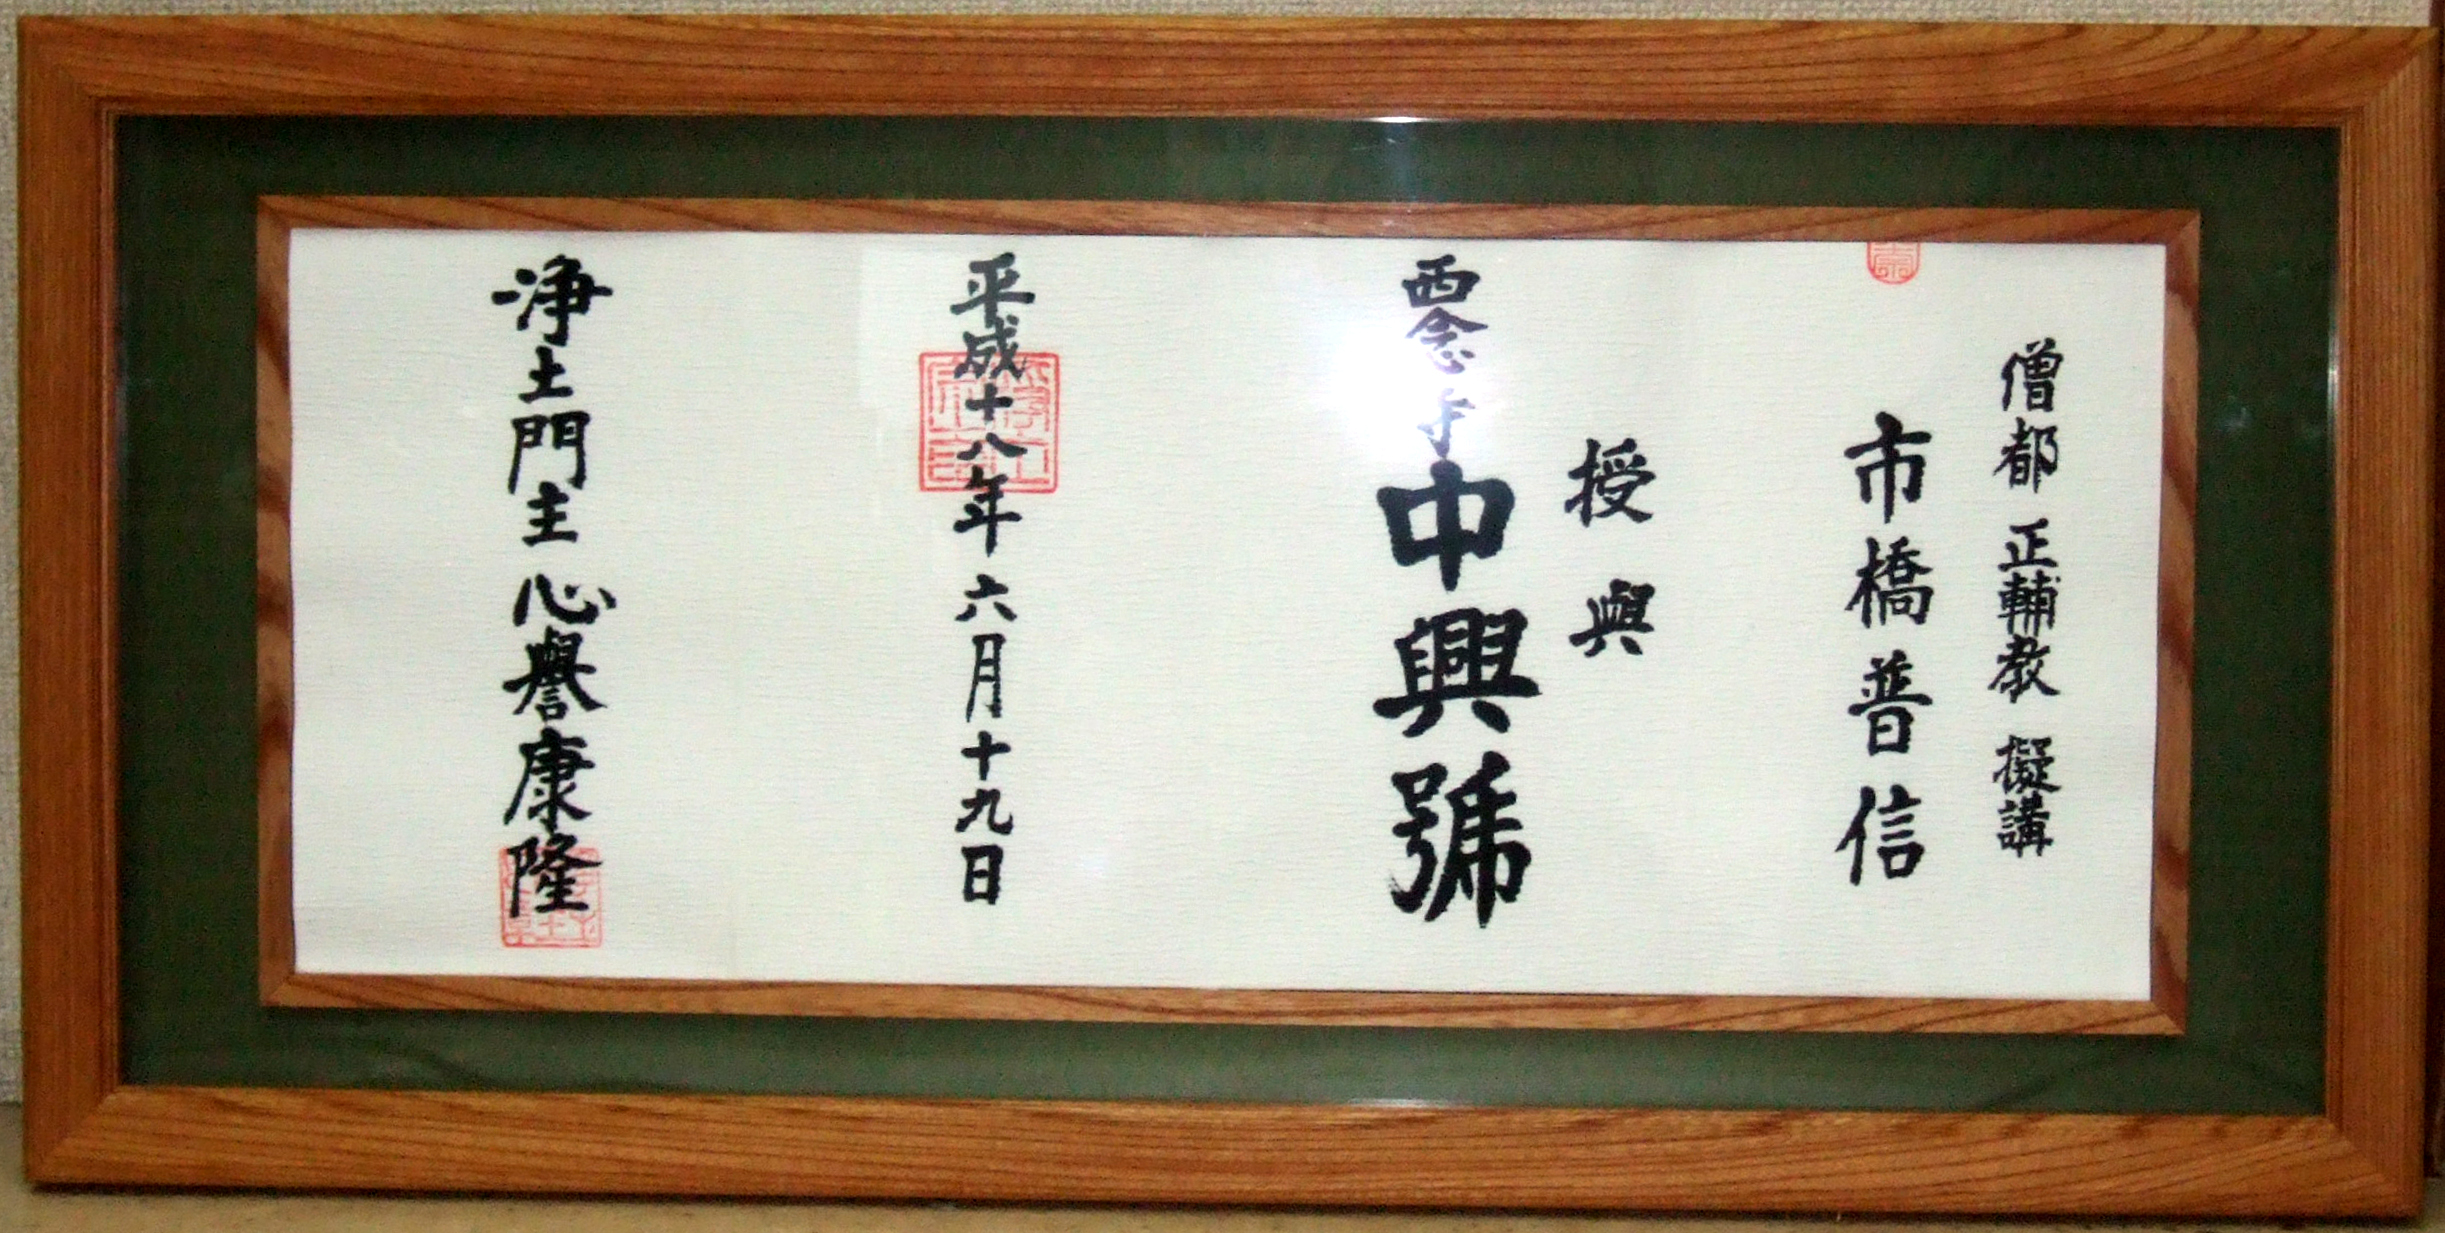 僧都 正輔教 擬講
市橋普信
授與
西念寺中興號
平成十八年六月十九日
浄土門主 心譽康隆